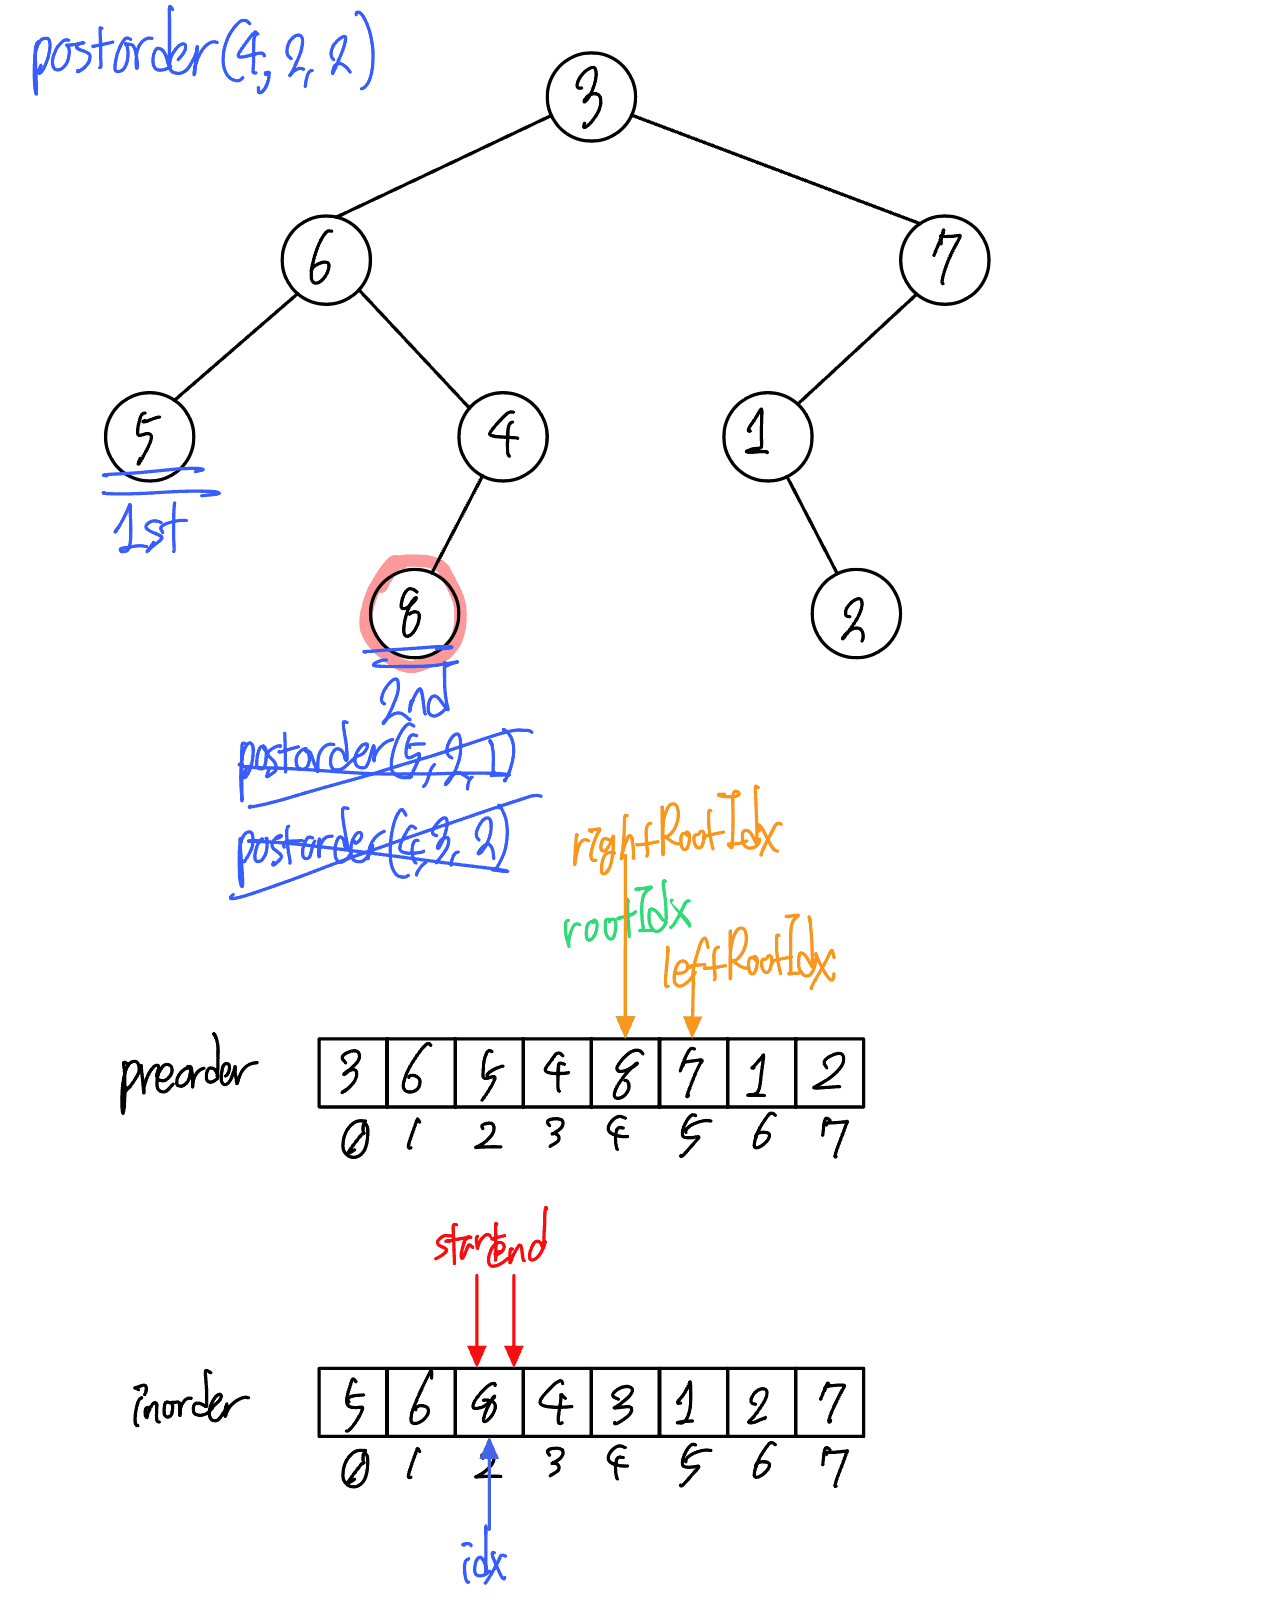 postorder(4, 2, 2)
3
6
7
5
4
1
1st
8
2
2nd
postorder(5, 2, 1)
postorder(4, 3, 2)
rightRootIdx
rootIdx
leftRootIdx
preorder 3 6 5 4 8 7 1 2
0 1 2 3 4 5 6 7
start end
inorder 5 6 8 4 3 1 2 7
0 1 2 3 4 5 6 7
idx